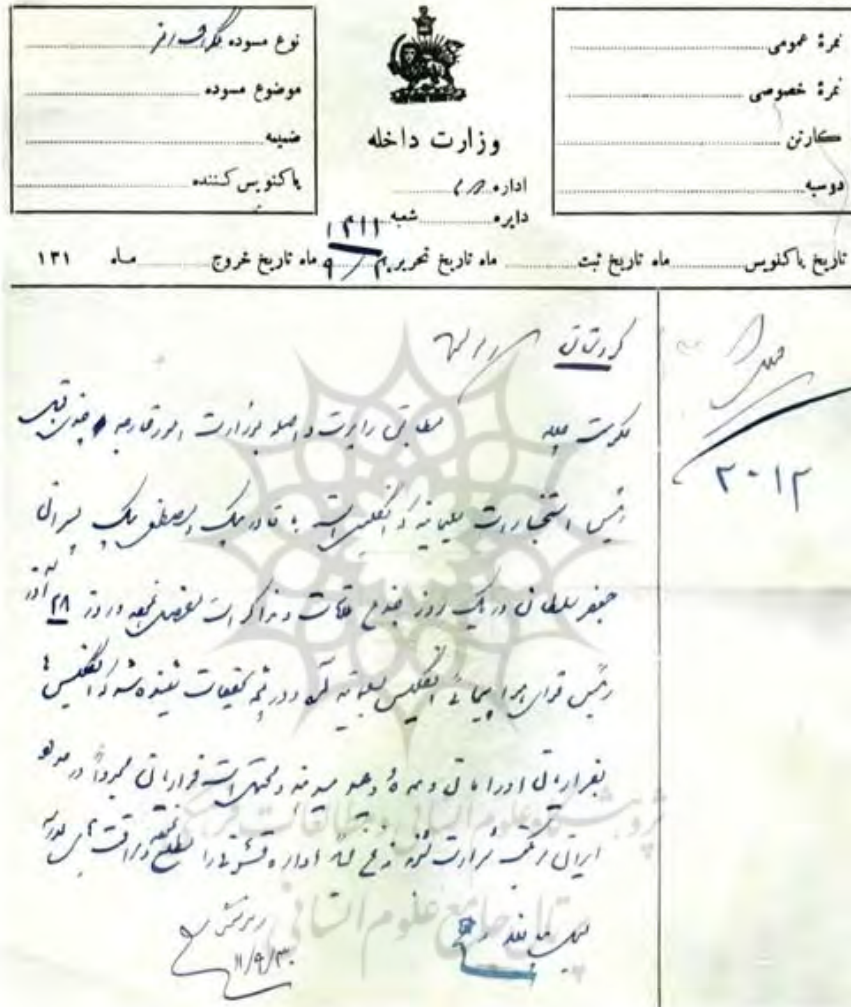 نمرهٔ عمومی
نمرهٔ خصوصی
کارتن
دوسیه
وزارت داخله
اداره
دایره شعبه
نوع مسوده تلگراف رمز
موضوع مسوده
ضمیمه
پاکنویس کننده
۱۳۱۱
تاریخ پاکنویس ماه تاریخ ثبت ماه تاریخ تحریر ۹ ماه تاریخ خروج ماه ۱۳۱
۲۰۱۲
کردستان
حکومت جلیله مطابق راپرت واصله بوزارت امور خارجه چندی قبل
رئیس استخبارات سلیمانیه که انگلیسی است با قادر بیک و مصطفی بیک پسران
جعفر سلطان در یک روز ملاقات و مذاکرات مفصلی نموده و روز ۲۸
رئیس قوای هواپیمائی انگلیس بسلیمانیه آمده و در نتیجه تحقیقات شنیده شد که انگلیس ها
بفراریان اورامان وعده میدهند و محتمل است فراریان مجدداً در حدود
ایران شرارت کنند اداره قشونی را مطلع
نمایند
۱۱/۹/۳۰
پژوهشگاه علوم انسانی و مطالعات فرهنگی
پرتال جامع علوم انسانی